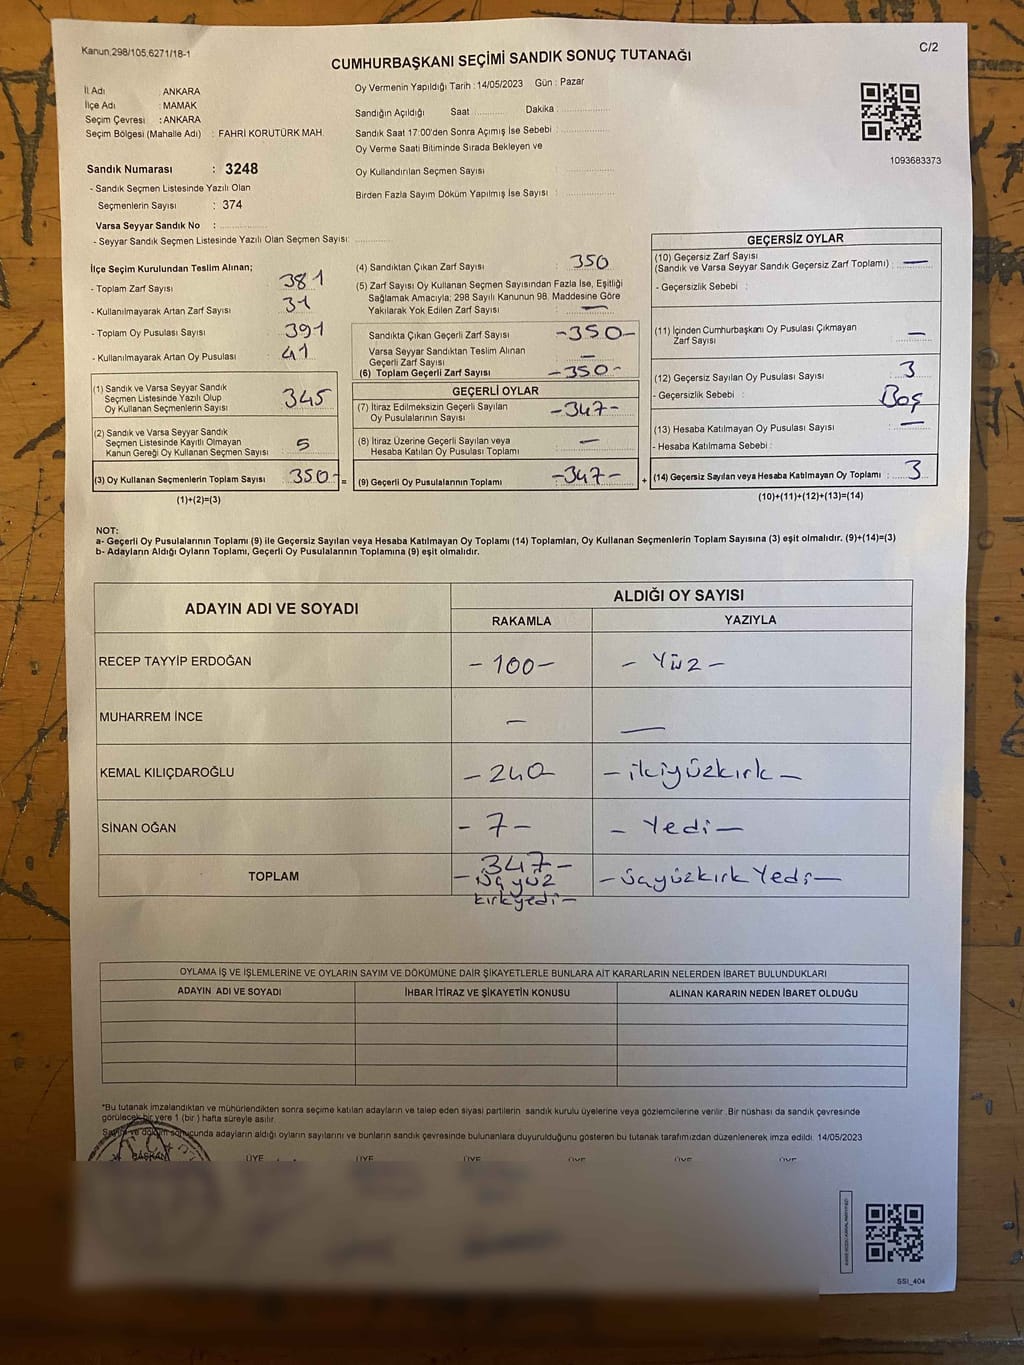 Kanun,298/105,6271/18-1
C/2
CUMHURBAŞKANI SEÇİMİ SANDIK SONUÇ TUTANAĞI
İl Adı : ANKARA
İlçe Adı : MAMAK
Seçim Çevresi : ANKARA
Seçim Bölgesi (Mahalle Adı) : FAHRİ KORUTÜRK MAH.
Sandık Numarası : 3248
- Sandık Seçmen Listesinde Yazılı Olan
Seçmenlerin Sayısı : 374
Varsa Seyyar Sandık No :
- Seyyar Sandık Seçmen Listesinde Yazılı Olan Seçmen Sayısı:
Oy Vermenin Yapıldığı Tarih : 14/05/2023 Gün : Pazar
Sandığın Açıldığı Saat Dakika
Sandık Saat 17:00'den Sonra Açımış İse Sebebi :
Oy Verme Saati Bitiminde Sırada Bekleyen ve
Oy Kullandırılan Seçmen Sayısı :
Birden Fazla Sayım Döküm Yapılmış İse Sayısı :
1093683373
İlçe Seçim Kurulundan Teslim Alınan;
- Toplam Zarf Sayısı 381
- Kullanılmayarak Artan Zarf Sayısı 31
- Toplam Oy Pusulası Sayısı 391
- Kullanılmayarak Artan Oy Pusulası 41
(1) Sandık ve Varsa Seyyar Sandık
Seçmen Listesinde Yazılı Olup
Oy Kullanan Seçmenlerin Sayısı 345
(2) Sandık ve Varsa Seyyar Sandık
Seçmen Listesinde Kayıtlı Olmayan
Kanun Gereği Oy Kullanan Seçmen Sayısı 5
(3) Oy Kullanan Seçmenlerin Toplam Sayısı 350- =
(1)+(2)=(3)
(4) Sandıktan Çıkan Zarf Sayısı 350
(5) Zarf Sayısı Oy Kullanan Seçmen Sayısından Fazla İse, Eşitliği
Sağlamak Amacıyla; 298 Sayılı Kanunun 98. Maddesine Göre
Yakılarak Yok Edilen Zarf Sayısı —
Sandıkta Çıkan Geçerli Zarf Sayısı -350-
Varsa Seyyar Sandıktan Teslim Alınan
Geçerli Zarf Sayısı —
(6) Toplam Geçerli Zarf Sayısı -350-
GEÇERLİ OYLAR
(7) İtiraz Edilmeksizin Geçerli Sayılan
Oy Pusulalarının Sayısı -347-
(8) İtiraz Üzerine Geçerli Sayılan veya
Hesaba Katılan Oy Pusulası Toplamı —
(9) Geçerli Oy Pusulalarının Toplamı -347- +
GEÇERSİZ OYLAR
(10) Geçersiz Zarf Sayısı
(Sandık ve Varsa Seyyar Sandık Geçersiz Zarf Toplamı) : —
- Geçersizlik Sebebi :
(11) İçinden Cumhurbaşkanı Oy Pusulası Çıkmayan
Zarf Sayısı : —
(12) Geçersiz Sayılan Oy Pusulası Sayısı : 3
- Geçersizlik Sebebi : Boş
(13) Hesaba Katılmayan Oy Pusulası Sayısı : —
- Hesaba Katılmama Sebebi :
(14) Geçersiz Sayılan veya Hesaba Katılmayan Oy Toplamı : 3
(10)+(11)+(12)+(13)=(14)
NOT:
a- Geçerli Oy Pusulalarının Toplamı (9) ile Geçersiz Sayılan veya Hesaba Katılmayan Oy Toplamı (14) Toplamları, Oy Kullanan Seçmenlerin Toplam Sayısına (3) eşit olmalıdır. (9)+(14)=(3)
b- Adayların Aldığı Oyların Toplamı, Geçerli Oy Pusulalarının Toplamına (9) eşit olmalıdır.
ADAYIN ADI VE SOYADI
ALDIĞI OY SAYISI
RAKAMLA YAZIYLA
RECEP TAYYİP ERDOĞAN -100- -Yüz-
MUHARREM İNCE — —
KEMAL KILIÇDAROĞLU -240 -ikiyüzkırk-
SİNAN OĞAN -7- -Yedi-
TOPLAM 347- -üçyüzkırkYedi-
-üçyüz
kırkyedi-
OYLAMA İŞ VE İŞLEMLERİNE VE OYLARIN SAYIM VE DÖKÜMÜNE DAİR ŞİKAYETLERLE BUNLARA AİT KARARLARIN NELERDEN İBARET BULUNDUKLARI
ADAYIN ADI VE SOYADI İHBAR İTİRAZ VE ŞİKAYETİN KONUSU ALINAN KARARIN NEDEN İBARET OLDUĞU
*Bu tutanak imzalandıktan ve mühürlendikten sonra seçime katılan adayların ve talep eden siyasi partilerin sandık kurulu üyelerine veya gözlemcilerine verilir. Bir nüshası da sandık çevresinde
görülecek bir yere 1 (bir) hafta süreyle asılır.
Sayım ve döküm sonucunda adayların aldığı oyların sayılarını ve bunların sandık çevresinde bulunanlara duyurulduğunu gösteren bu tutanak tarafımızdan düzenlenerek imza edildi. 14/05/2023
BAŞKAN ÜYE ÜYE ÜYE ÜYE ÜYE ÜYE
SSI_404